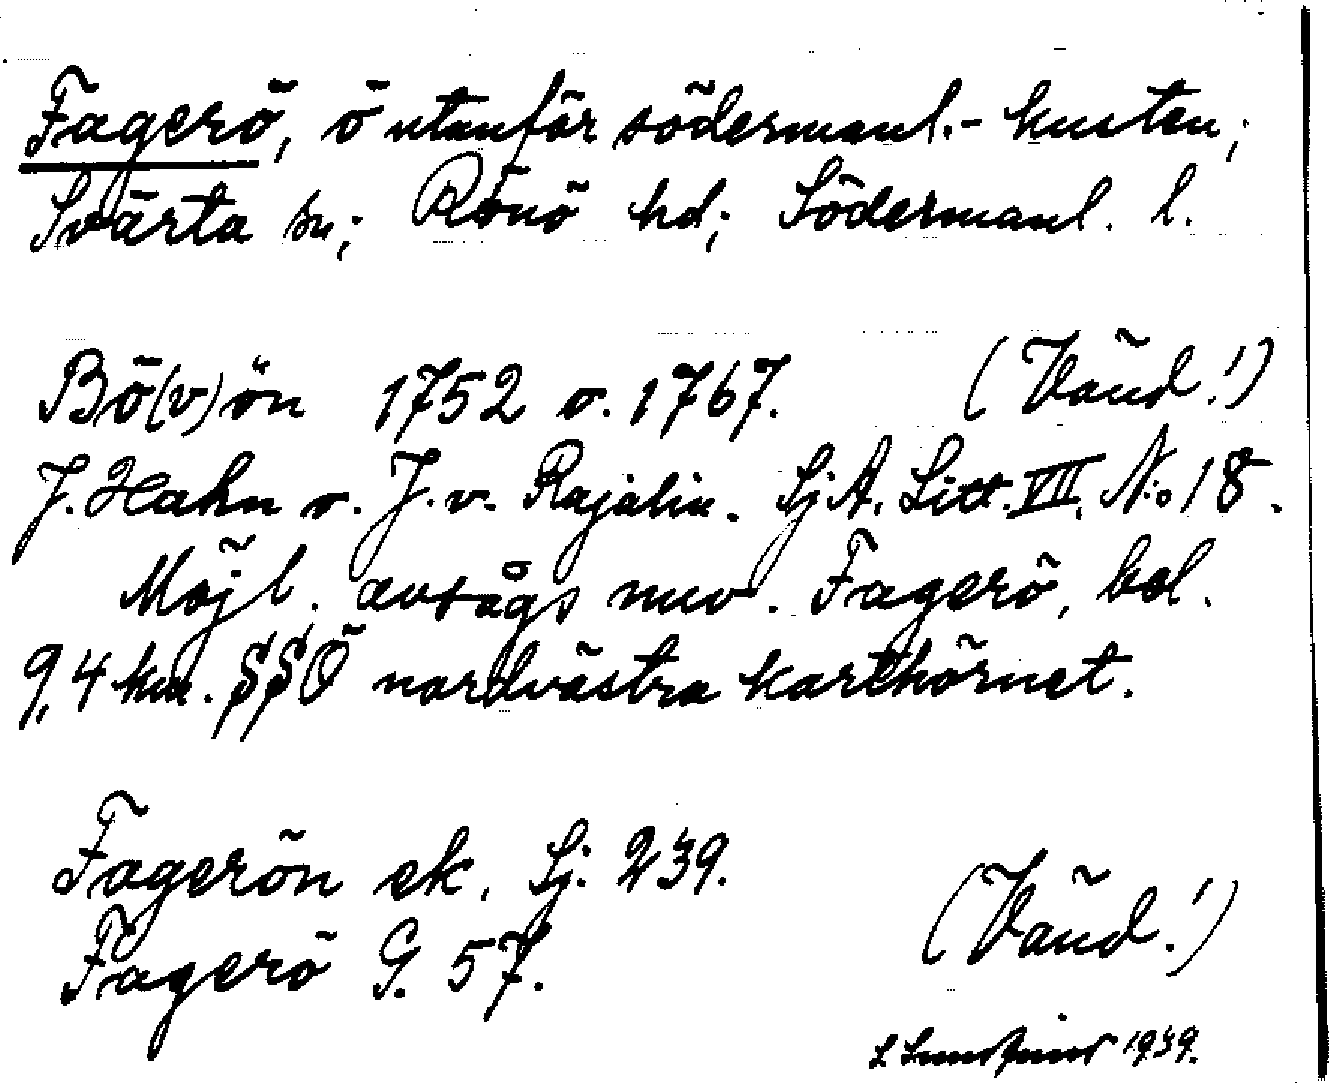 Fagerö, ö utanför södermanl.- kusten;
Svärta sn; Rönö hd; Södermanl. l.
Bö(v)ön 1752 o. 1767. (Vänd!)
J. Hahn o. J. v. Rajalin. Sj A. Litt. VII, N:o 18.
Möjl. avsågs nuv. Fagerö, bel.
9,4 km. SSÖ nordvästra karthörnet.
Fagerön ek. Sj. 239.
Fagerö G. 57.
(Vänd!)
1939.